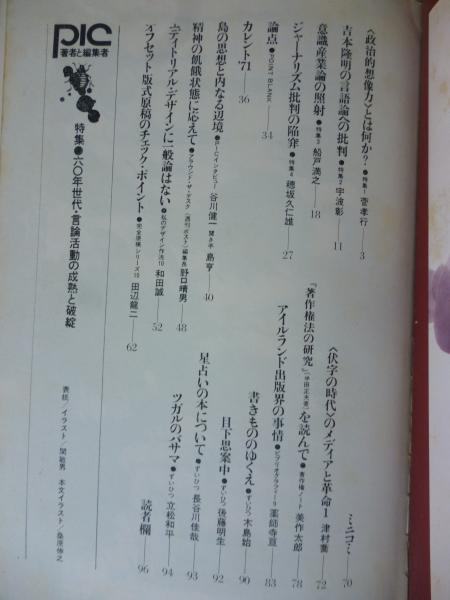 〈政治的想像力〉とは何か?●特集1 菅孝行 3
吉本隆明の言語論への批判●特集2 宇波彰 11
意識産業論の照射●特集3 船戸満之 18
ジャーナリズム批判の陥穽●特集4 穂坂久仁雄 27
論点●POINT BLANK 34
カレント'71 36
島の思想と内なる辺境●PICインタビュー 谷川健一 聞き手 島亨 40
精神の飢餓状態に応えて●アラウンド・ザ・デスク〈週刊ポスト〉編集長 野口晴男 48
エディトリアル・デザインに一般論はない●私のデザイン作法10 和田誠 52
オフセット版式原稿のチェック・ポイント●完全原稿シリーズ10 田辺龍二 62
ミニコミ 70
〈伏字の時代〉のメディアと革命1 津村喬 72
『著作権法の研究』(半田正夫著)を読んで●著作権ノート 美作太郎 78
アイルランド出版界の事情●ビブリオグラフィー8 薬師寺亘 83
書きもののゆくえ●ずいひつ 木島始 90
目下思案中●ずいひつ 後藤明生 92
星占いの本について●ずいひつ 長谷川佳哉 93
ツガルのバサマ●ずいひつ 立松和平 94
読者欄 96
pic
著者と編集者
特集●六〇年世代・言論活動の成熟と破綻
表紙/イラスト/関敏男 本文イラスト/桑原伸之